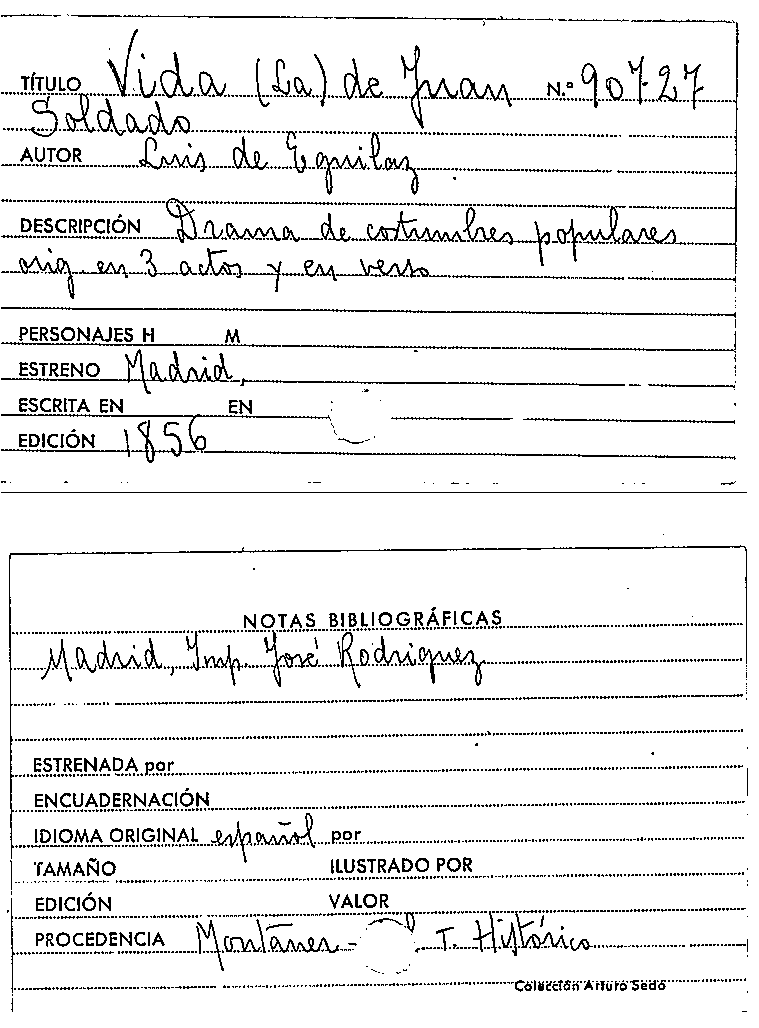 TÍTULO Vida (La) de Juan N.º 90727
Soldado
AUTOR Luis de Eguilaz
DESCRIPCIÓN Drama de costumbres populares
orig en 3 actos y en verso
PERSONAJES H M
ESTRENO Madrid,
ESCRITA EN EN
EDICIÓN 1856
NOTAS BIBLIOGRÁFICAS
Madrid, Imp. José Rodriguez
ESTRENADA por
ENCUADERNACIÓN
IDIOMA ORIGINAL español por
TAMAÑO ILUSTRADO POR
EDICIÓN VALOR
PROCEDENCIA Montaner - T. Histórico
Colección Arturo Sedó